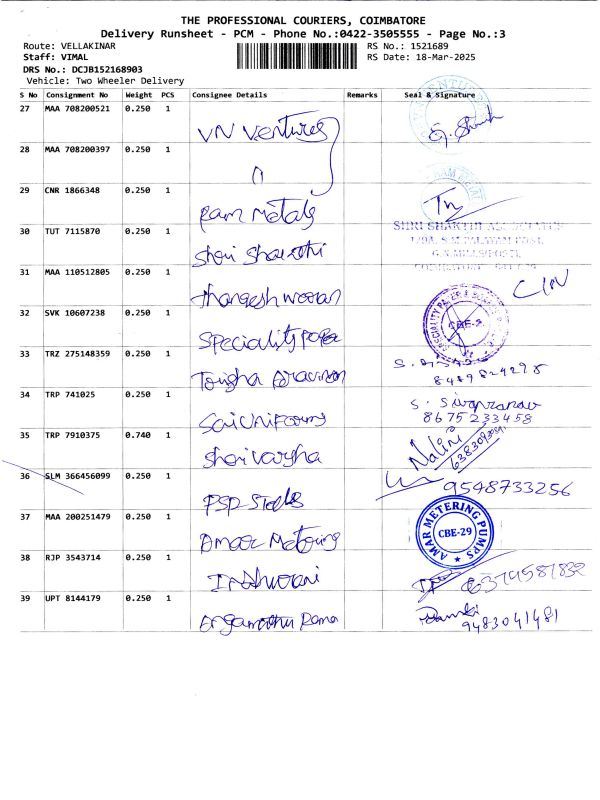 THE PROFESSIONAL COURIERS, COIMBATORE
Delivery Runsheet - PCM - Phone No.:0422-3505555 - Page No.:3
Route: VELLAKINAR
RS No.: 1521689
Staff: VIMAL
RS Date: 18-Mar-2025
DRS No.: DCJB152168903
Vehicle: Two Wheeler Delivery
S No Consignment No Weight PCS Consignee Details Remarks Seal & Signature
27 MAA 708200521 0.250 1 VN Ventures
28 MAA 708200397 0.250 1
29 CNR 1866348 0.250 1 Ram Metals
30 TUT 7115870 0.250 1 Shri Shakthi
SHRI SHAKTHI ASSOCIATES
31 MAA 110512805 0.250 1
32 SVK 10607238 0.250 1 Speciality Paper
CBE-2
33 TRZ 275148359 0.250 1
34 TRP 741025 0.250 1 Sai Uniforms
8675233458
35 TRP 7910375 0.740 1 Shri Varsha
Nalini
36 SLM 366456099 0.250 1 PSP Steels
9548733256
37 MAA 200251479 0.250 1 Amar Metering
AMAR METERING PUMPS
CBE-29
38 RJP 3543714 0.250 1
39 UPT 8144179 0.250 1
9483041481